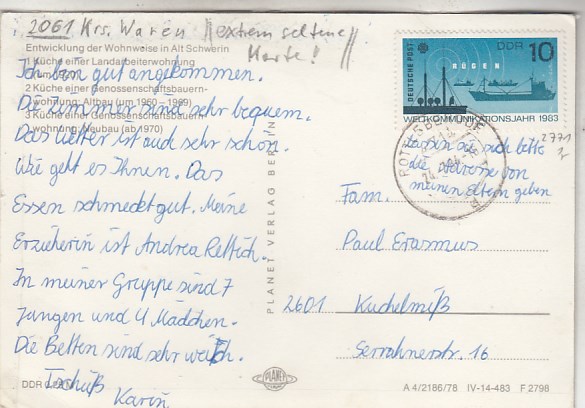 2061 Krs. Waren || extrem seltene Karte! ||
Entwicklung der Wohnweise in Alt Schwerin
1 Küche einer Landarbeiterwohnung
2 Küche einer Genossenschaftsbauern-
wohnung Altbau (um 1960 – 1969)
3 Küche einer Genossenschaftsbauern-
wohnung Neubau (ab 1970)
Ich bin gut angekommen.
Die Zimmer sind sehr bequem.
Das Wetter ist auch sehr schön.
Wie geht es Ihnen. Das
Essen schmeckt gut. Meine
Erzieherin ist Andrea Rettich.
In meiner Gruppe sind 7
Jungen und 4 Mädchen.
Die Betten sind sehr weich.
Tschüß
Karin
PLANET VERLAG BERLIN
DEUTSCHE POST
DDR 10
RÜGEN
WELTKOMMUNIKATIONSJAHR 1983
2771
Lassen sie sich bitte
die Adresse von
meinen Eltern geben
Fam.
Paul Erasmus
2601 Kuchelmiß
Serrahnerstr. 16
DDR
PLANET
A 4/2186/78 IV-14-483 F 2798